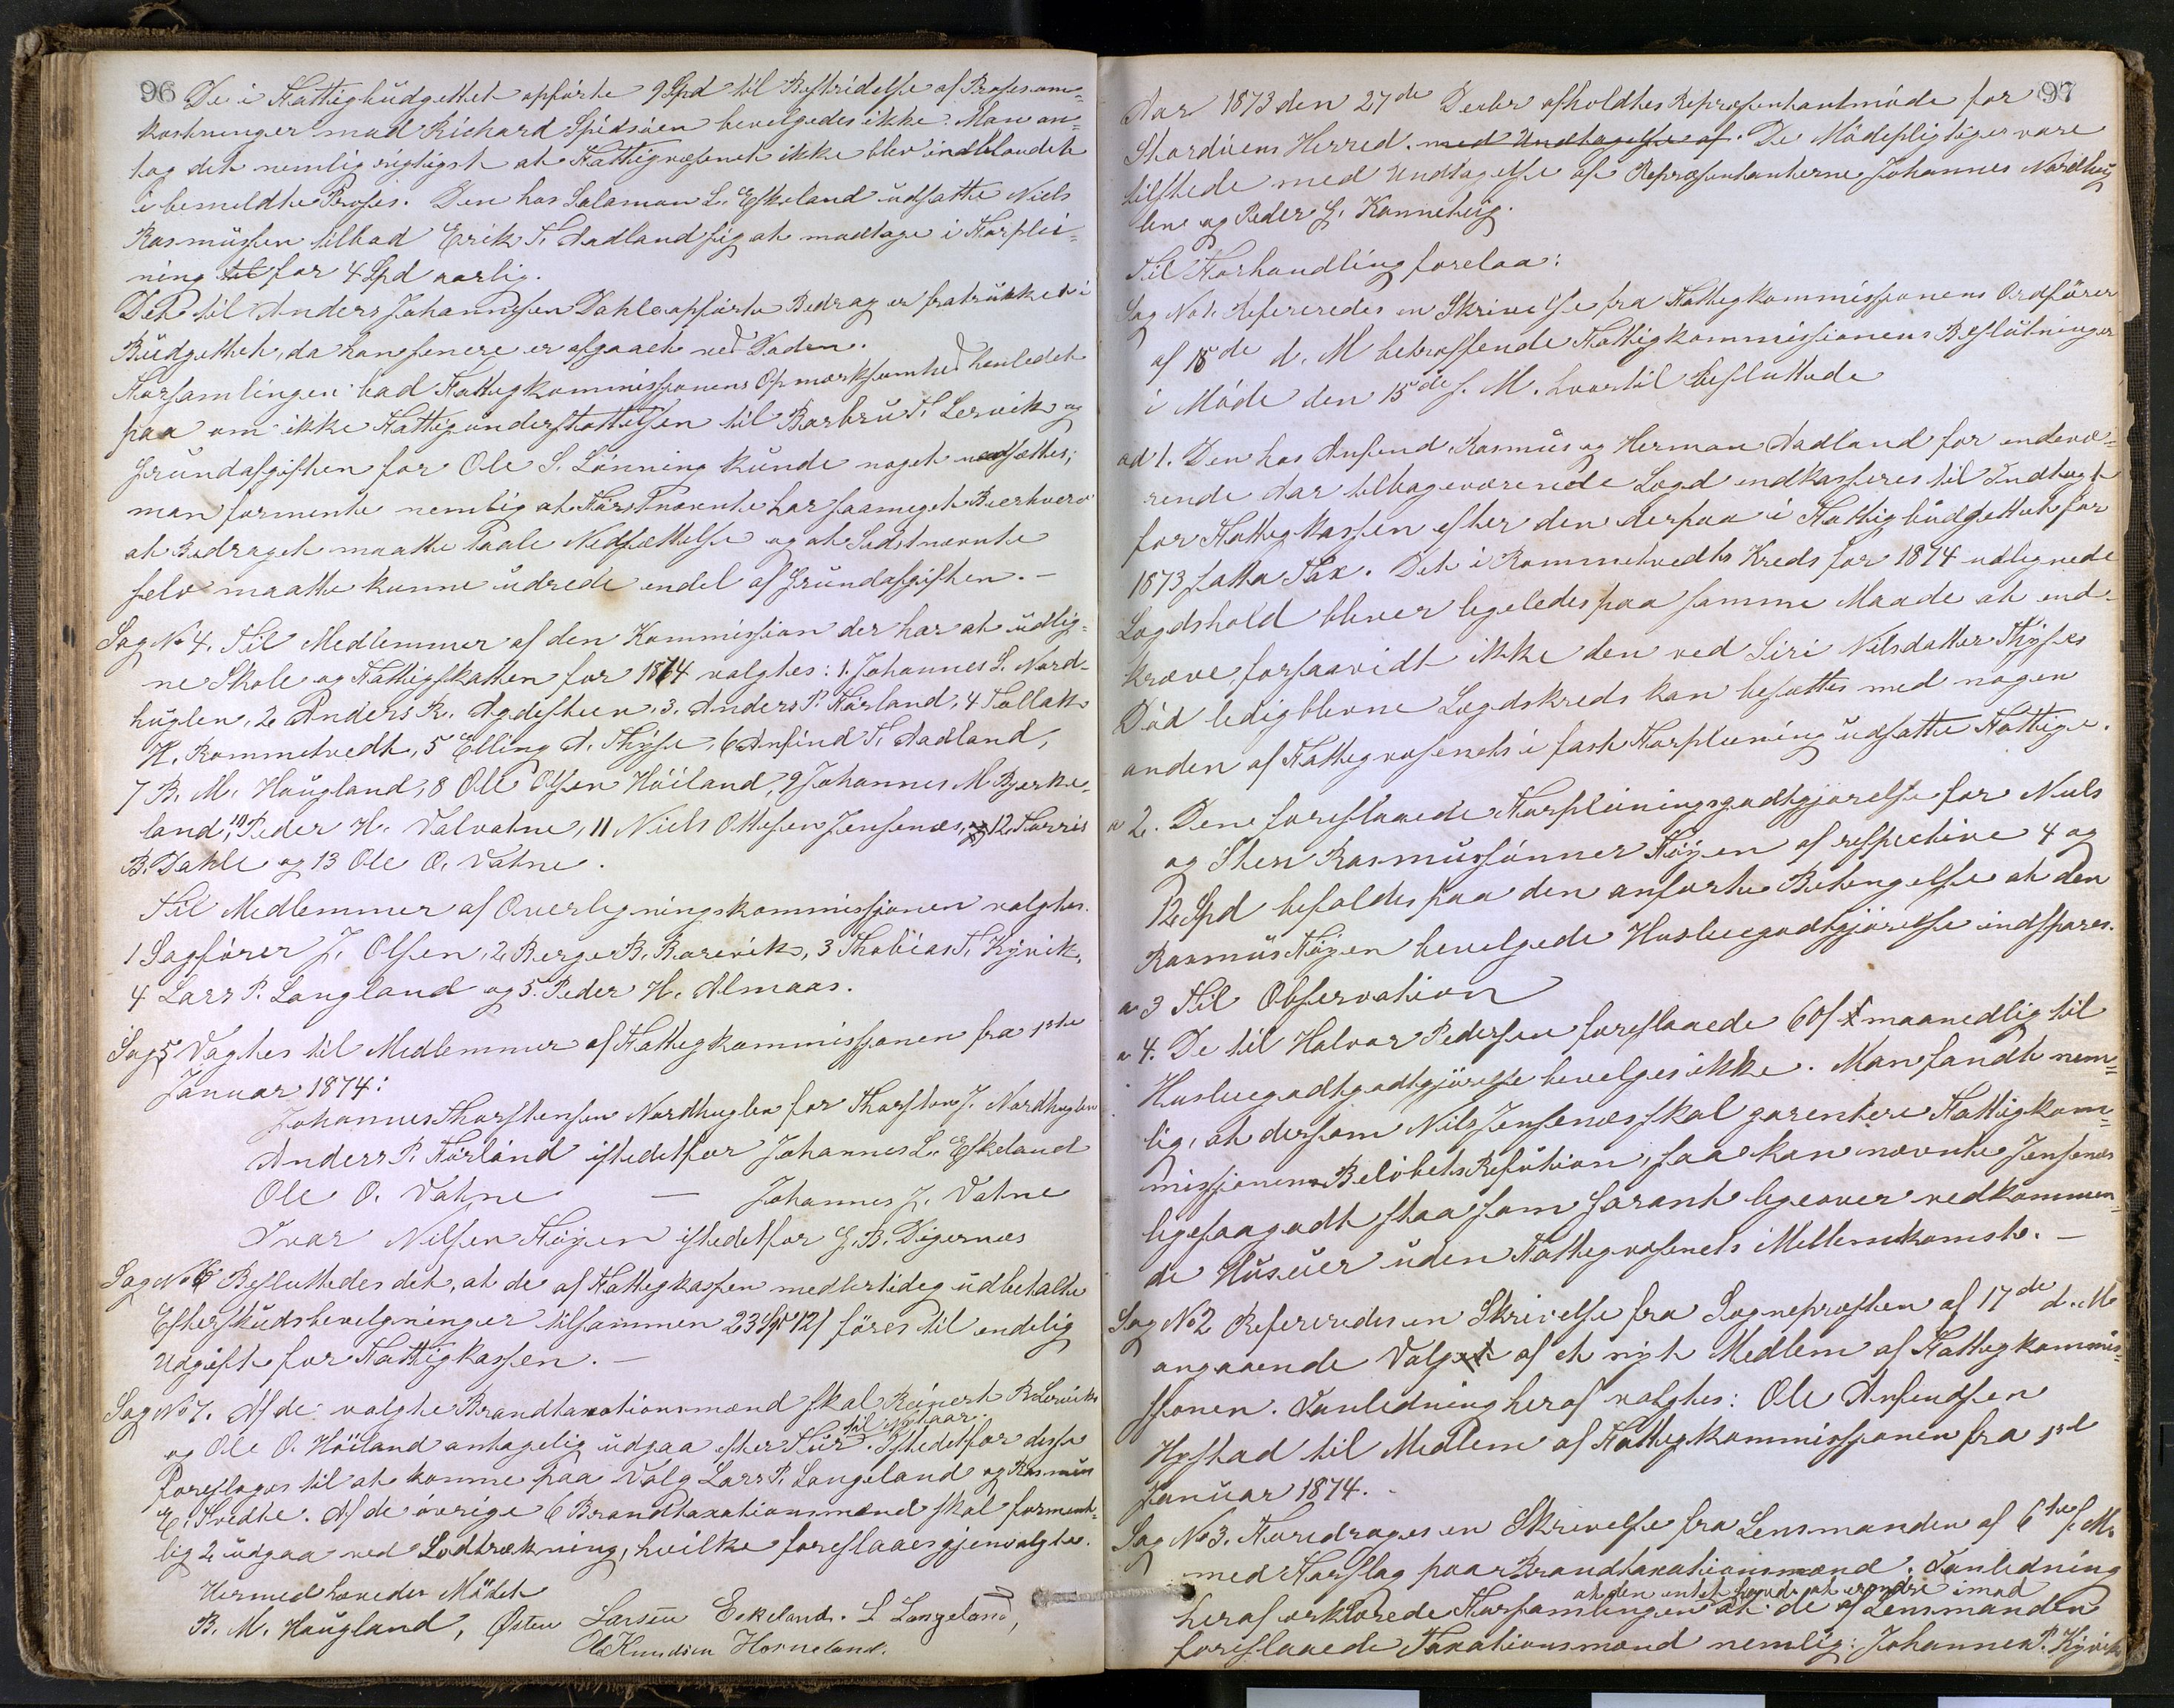 96
De i Fattigbudgettet opførte 9 Spd til Bestridelse af Prosesom-
kostninger mod Richard Spidsöen bevelgedes ikke. Man an-
tog det nemlig rigtigst at Fattigvæsenet ikke blev indblandet
i bemeldte Proses. Den hos Salamon L. Eskeland udsatte Niels
Rasmussen tilbød Erik T. Aadland sig at modtage i Forplei-
ning til for 4 Spd aarlig.
Det til Anders Johannessen Dahle opförte Bedrag er fratrukket i
Budgettet, da han senere er afgaaet ved Döden.
Forsamlingen bad Fattigkommissionens Opmærksomhed henledet
paa om ikke Fattigunderstöttelsen til Barbru T. Lervik og
Grundafgiften for Ole S. Lönning kunde noget nedsættes;
man formente nemlig at Förstnævnte har saameget Bierhverv
at Bedraget maatte taale Nedsættelse og at Sidstnævnte
selv maatte kunne udrede endel af Grundafgiften. –
Sag No 4. Til Medlemmer af den Kommission der har at udlig-
ne Skole og Fattigskatten for 1874 valgtes: 1. Johannes S. Nord-
huglen, 2 Anders R. Agdesteen, 3. Anders P. Förland, 4 Tollak
H. Rommetvedt, 5 Elling A. Thyse, 6 Anfind T. Aadland,
7 B. M. Haugland, 8 Ole Olsen Höiland, 9 Johannes M Bjerke-
land, 10 Peder H. Valvatne, 11 Niels Ottesen Jensenæs, og 12 Torris
B. Dahle og 13 Ole O. Vatne.
Til Medlemmer af Overligningskommissjonen valgtes.
1 Sagförer J. Olsen, 2 Berger B. Barevik, 3 Thobias T. Kyvik,
4 Lars P. Langland og 5. Peder H. Almaas.
Sag 5 Valgtes til Medlemmer af Fattigkommissjonen fra 1ste
Januar 1874:
Johannes Thorstensen Nordhuglen for Thorsten J. Nordhuglen
Anders P. Förland istedetfor Johannes L. Eskeland
Ole O. Vatne — Johannes J. Vatne
Ivar Nilsen Höyen istedetfor G. B. Digernæs
Sag No 6 Besluttedes det, at de af Fattigkassen medlertidig udbetalte
Efterskudsbevelgninger tilsammen 23 Sp 12 s föres til endelig
Udgift for Fattigkassen. –
Sag No 7. Af de valgte Brandtaxationsmænd skal Reinert B Lervik
til Nytaar.
og Ole O. Höiland antagelig udgaa efter Tur. Istedetfor disse
foreslages til at komme paa Valg Lars P. Langeland og Rasmus
E. Tvedte. Af de övrige 6 Brandtaxationsmænd skal forment-
lig 2 udgaa ved Lodtrækning, hvilke foreslaaes gjenvalgte.
Hermed hævedes Mödet
B. M. Haugland, Østen Larsen Eskeland. L Langeland,
Ole Knudsen Horneland.
97
Aar 1873 den 27de Decbr afholdtes Repræsentantmöde for
Stordöens Herred. med Undtagelse af. De Mödepligtige vare
tilstede med Undtagelse af Repræsentanterne Johannes Nordhug
len og Peder G. Kannelvig.
Til Forhandling forelaa:
Sag No 1. Refereredes en Skrivelse fra Fattigkommissionens Ordförer
af 18de d. M betreffende Fattigkommissionens Beslutninger
i Möde den 15de s. M. hvortil besluttede
ad 1. Den hos Anfind, Rasmus og Herman Aadland for indevæ-
rende Aar tilbageværende Lægd indkasseres til Indtægt
for Fattigkassen efter den derpaa i Fattigbudgettet for
1873 satte Tax. Det i Rommetvedts Kreds for 1874 udlignede
Lægdshold bliver ligeledes paa samme Maade at ind-
kræve, forsaavidt ikke den ved Siri Nilsdatter Thyses
Död ledigblevne Lægdskreds kan besættes med nogen
anden af Fattigvæsenets i fast Forpleining udsatte Fattige.
a 2. Den foreslaaede Forpleiningsgodtgjörelse for Niels
og Sten Rasmussönner Höyen af respective 4 og
12 Spd befoldes paa den anförte Betingelse at den
Rasmus Höyen bevelgede Husleiegodtgjörelse indspares.
a 3 Til Observation
a 4. De til Halvor Pedersen foreslaaede 60 s maanedlig til
Husleiegodtgodtgjörelse bevelges ikke. Man fandt nem-
lig, at dersom Nils Jensenæs skal garentere Fattigkom-
missjonen Belöbets Refution, saa kan nævnte Jensenæs
ligesaagodt staa som Garant ligeover vedkommen-
de Huseier uden Fattigvæsenets Mellemkomst. –
Sag No 2 Refereredes en Skrivelse fra Sognepræsten af 17de d. M
angaaende Valg af et nyt Medlem af Fattigkommis-
sjonen. I anledning heraf valgtes: Ole Anfindsen
Hystad til Medlem af Fattigkommissjonen fra 1ste
Januar 1874.
Sag No 3. Foredroges en Skrivelse fra Lensmanden af 6te f. M.
med Forslag paa Brandtaxationsmænd. I anledning
at den intet havde at erindre imod
heraf erklærede Forsamlingen at de af Lensmanden
foreslaaede Taxationsmænd nemlig: Johannes P. Kyvik